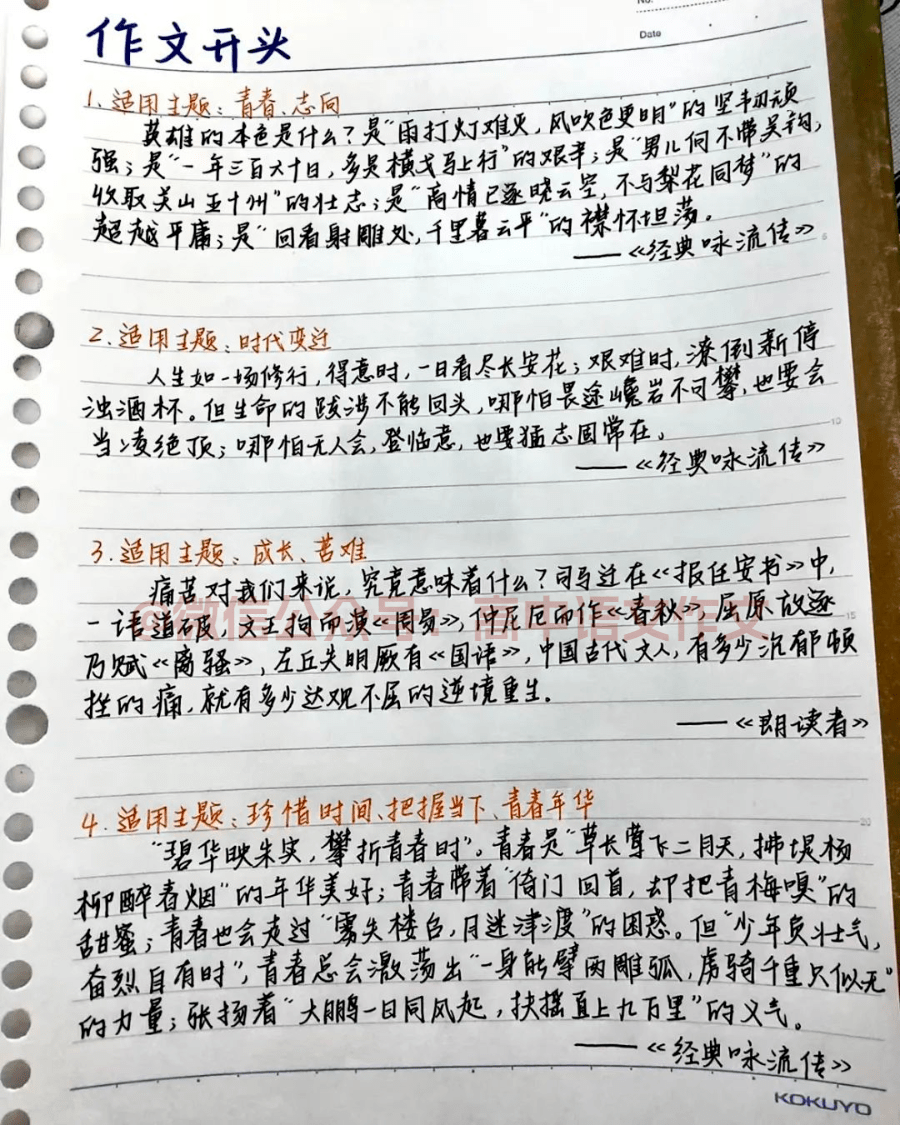 No.
Date
作文开头
1. 适用主题：青春、志向
英雄的本色是什么？是“雨打灯难灭，风吹色更明”的坚韧顽
强；是“一年三百六十日，多是横戈马上行”的艰辛；是“男儿何不带吴钩，
收取关山五十州”的壮志；是“高情已逐晓云空，不与梨花同梦”的
超越平庸；是“回看射雕处，千里暮云平”的襟怀坦荡。
——《经典咏流传》
2. 适用主题：时代变迁
人生如一场修行，得意时，一日看尽长安花；艰难时，潦倒新停
浊酒杯。但生命的跋涉不能回头，哪怕畏途巉岩不可攀，也要会
当凌绝顶；哪怕无人会，登临意，也要猛志固常在。
——《经典咏流传》
3. 适用主题：成长、苦难
痛苦对我们来说，究竟意味着什么？司马迁在《报任安书》中，
一语道破，文王拘而演《周易》，仲尼厄而作《春秋》，屈原放逐
乃赋《离骚》，左丘失明厥有《国语》，中国古代文人，有多少沉郁顿
挫的痛，就有多少达观不屈的逆境重生。
——《朗读者》
@微信公众号：高中语文作文
4. 适用主题：珍惜时间、把握当下、青春年华
“碧华映朱实，攀折青春时”。青春是“草长莺飞二月天，拂堤杨
柳醉春烟”的年华美好；青春带着“倚门回首，却把青梅嗅”的
甜蜜；青春也会走过“雾失楼台，月迷津渡”的困惑。但“少年负壮气，
奋烈自有时”，青春总会激荡出“一身能擘两雕弧，虏骑千重只似无”
的力量；张扬着“大鹏一日同风起，扶摇直上九万里”的义气。
——《经典咏流传》
KOKUYO